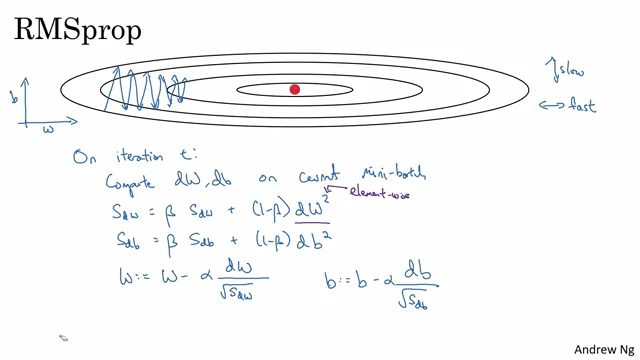 RMSprop
slow
fast
b
w
On iteration t:
Compute dW, db on current mini-batch
element-wise
S_dw = β S_dw + (1-β) dW²
S_db = β S_db + (1-β) db²
W := W - α dW/√S_dw
b := b - α db/√S_db
Andrew Ng